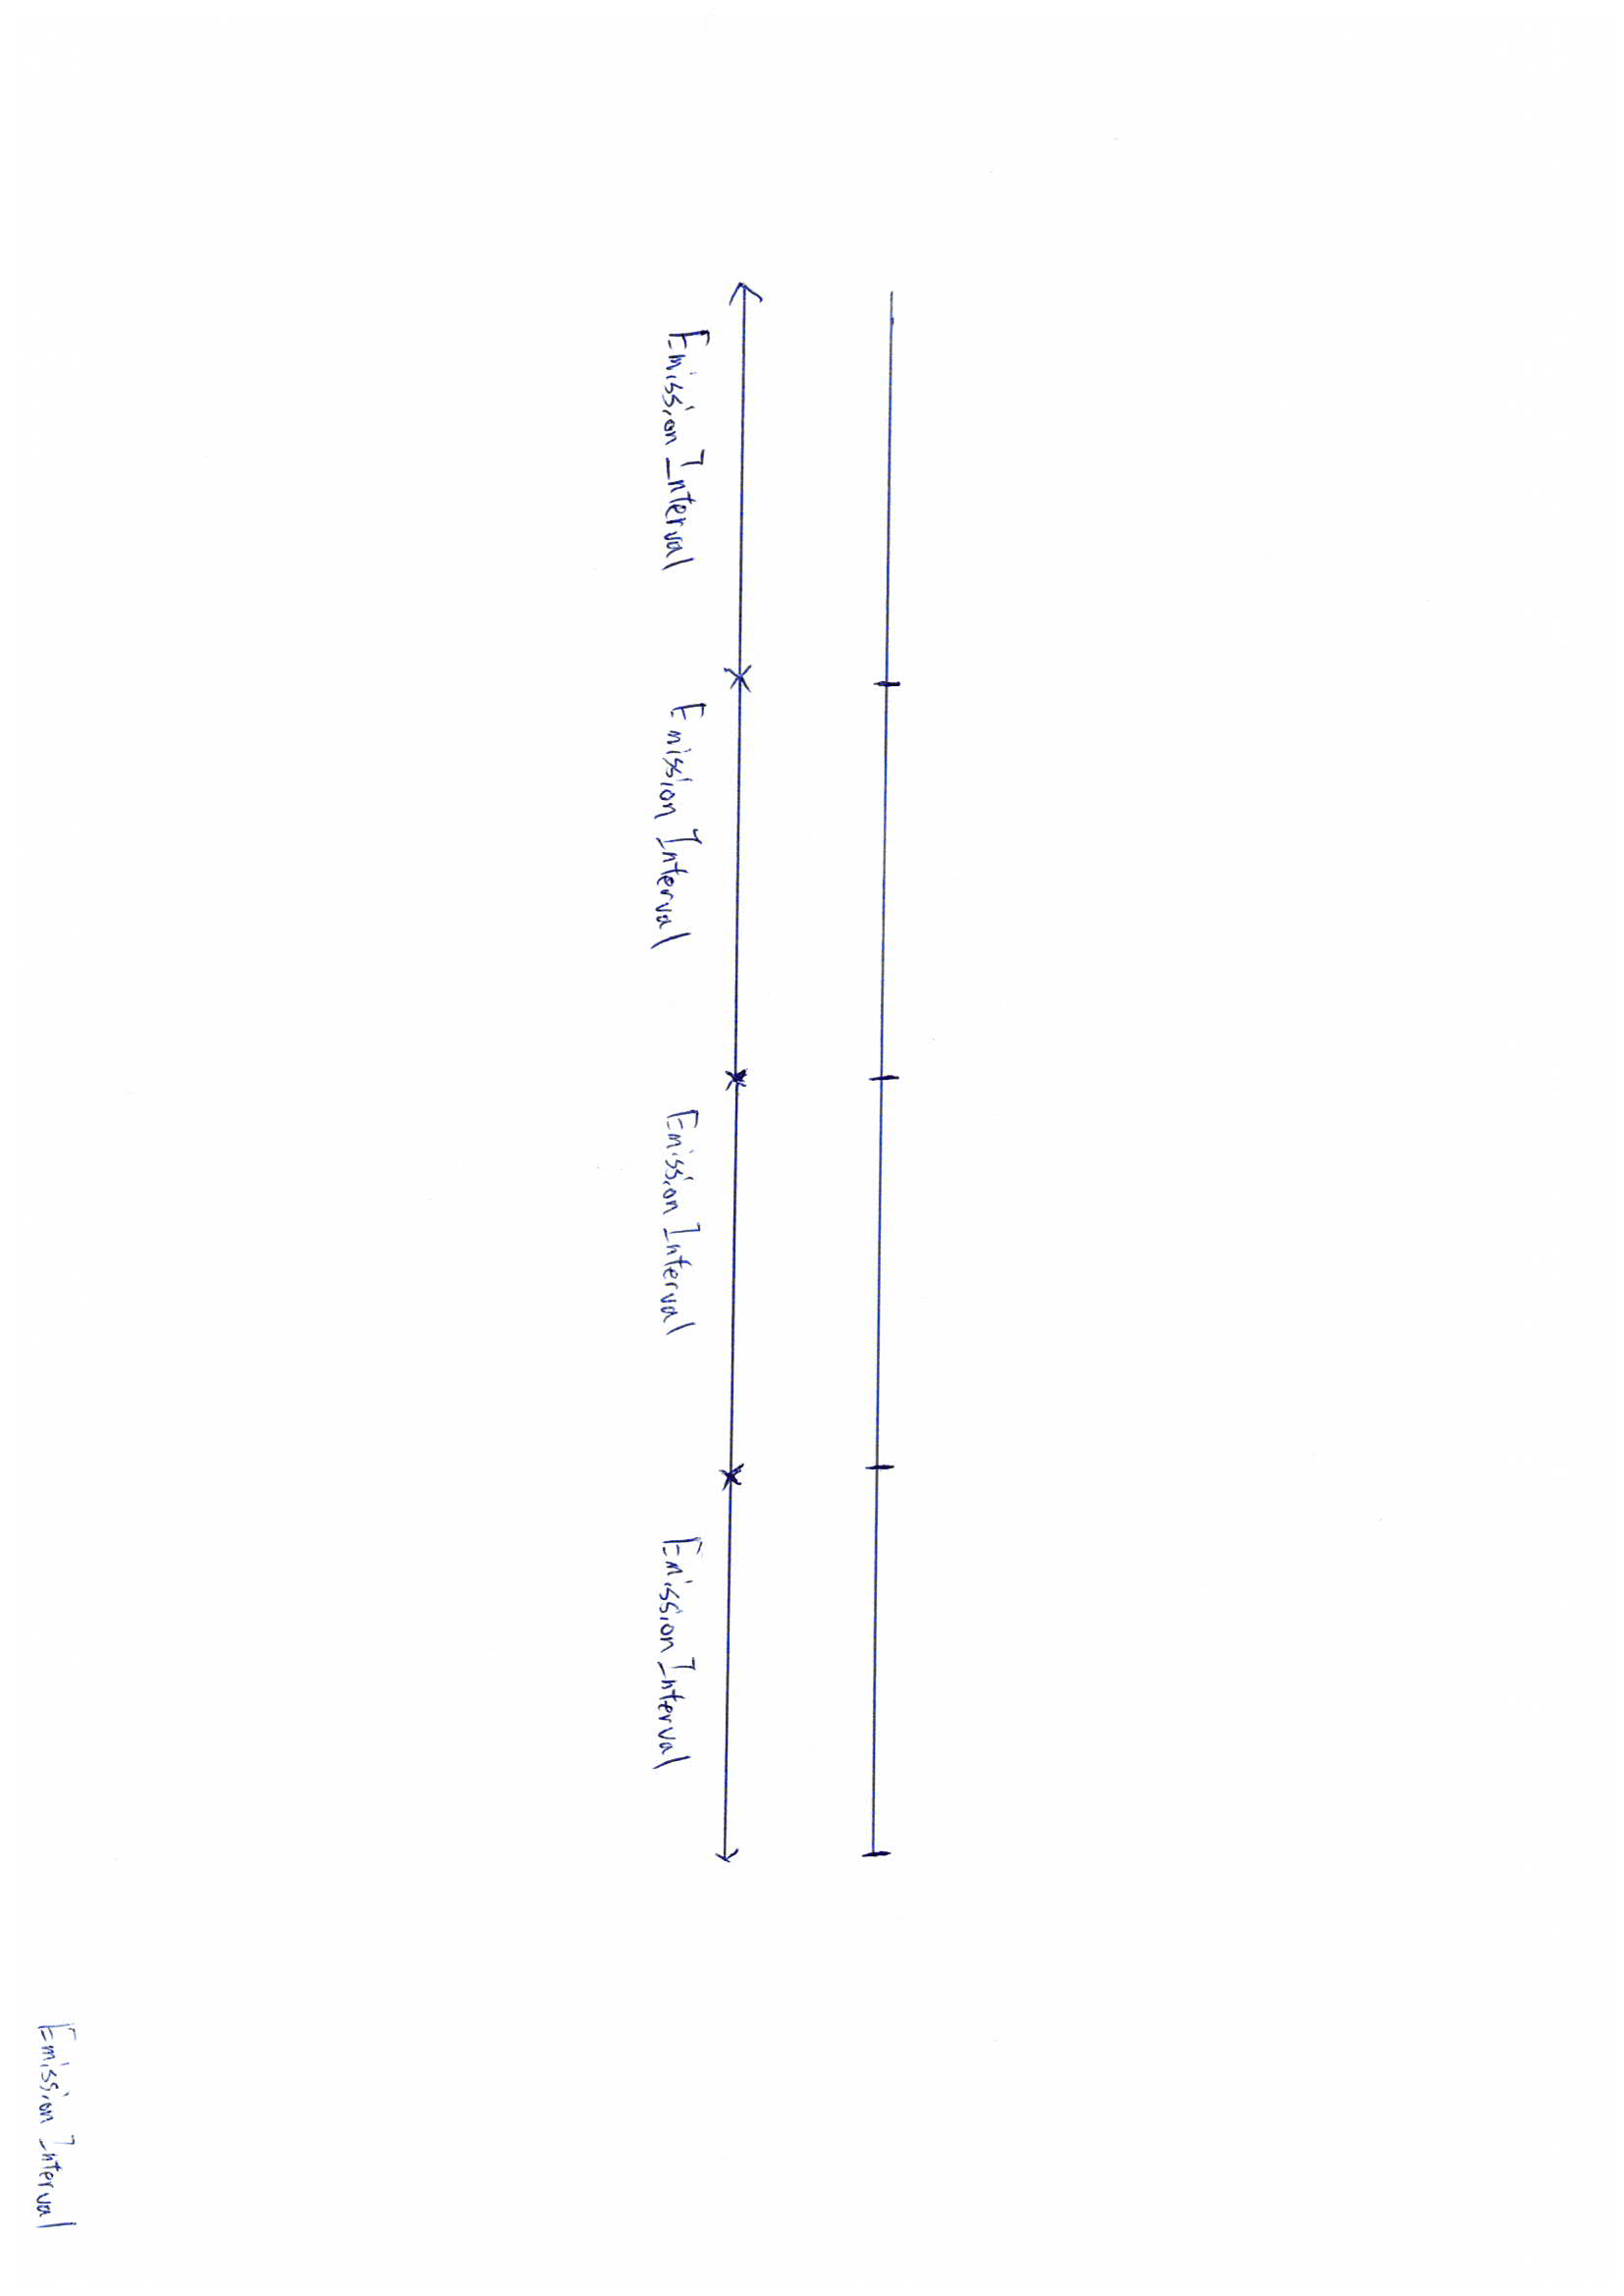 Emission Interval Emission Interval Emission Interval Emission Interval
Emission Interval